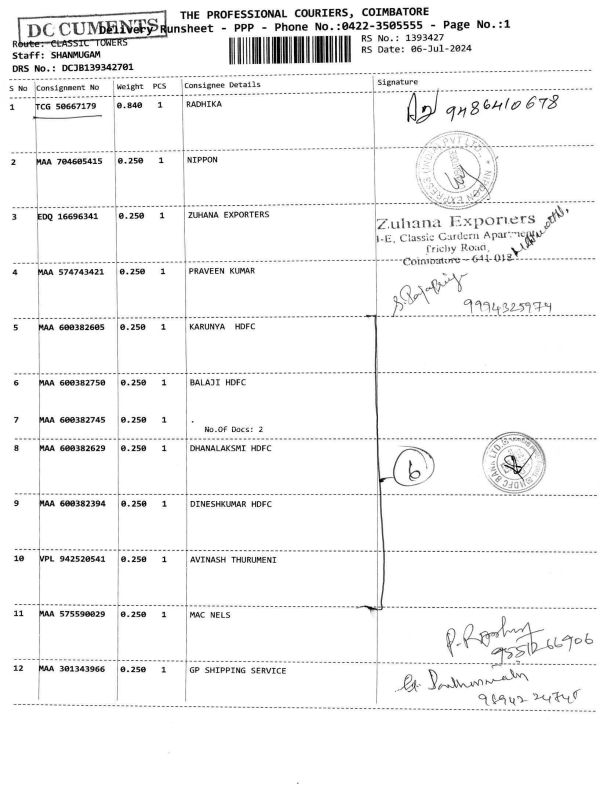 THE PROFESSIONAL COURIERS, COIMBATORE
DC CUMENTS Delivery Runsheet - PPP - Phone No.:0422-3505555 - Page No.:1
Route: CLASSIC TOWERS RS No.: 1393427
Staff: SHANMUGAM RS Date: 06-Jul-2024
DRS No.: DCJB139342701
S No Consignment No Weight PCS Consignee Details Signature
1 TCG 50667179 0.840 1 RADHIKA 9486410678
2 MAA 704605415 0.250 1 NIPPON
3 EDQ 16696341 0.250 1 ZUHANA EXPORTERS
Zuhana Exporters
I-E, Classic Gardern Apartment
Trichy Road,
Coimbatore - 641 018
4 MAA 574743421 0.250 1 PRAVEEN KUMAR
9994325974
5 MAA 600382605 0.250 1 KARUNYA HDFC
6 MAA 600382750 0.250 1 BALAJI HDFC
7 MAA 600382745 0.250 1 .
No.Of Docs: 2
8 MAA 600382629 0.250 1 DHANALAKSMI HDFC
6
HDFC BANK LTD
9 MAA 600382394 0.250 1 DINESHKUMAR HDFC
10 VPL 942520541 0.250 1 AVINASH THURUMENI
11 MAA 575590029 0.250 1 MAC NELS
9551266906
12 MAA 301343966 0.250 1 GP SHIPPING SERVICE
98942 24748